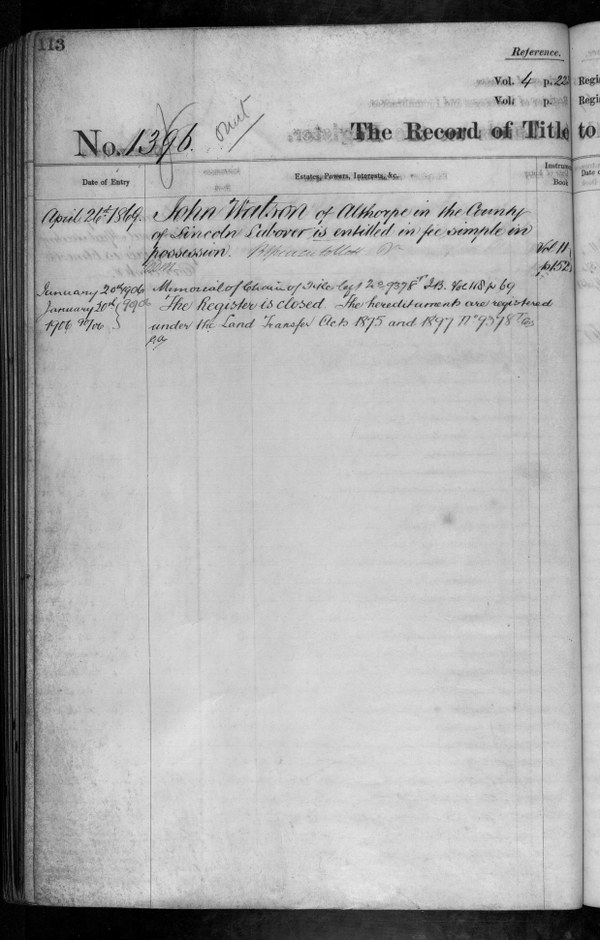 113
Reference.
Vol. 4 p. 22
Regi
Vol. p.
Regi
No. 1396.
The Record of Title to
Date of Entry
Estates, Powers, Interests, &c.
Instrum
Book
Date o
April 26th 1869.
John Watson of Althorpe in the County
of Lincoln Laborer is entitled in fee simple in
possession.
Vol 11
p 152
January 20th 1906
Memorial of Claim of Title by No 9378 Vol 118 p 69
January 20th
The Register is closed. The hereditaments are registered
1906
under the Land Transfer Acts 1875 and 1897 No 9378